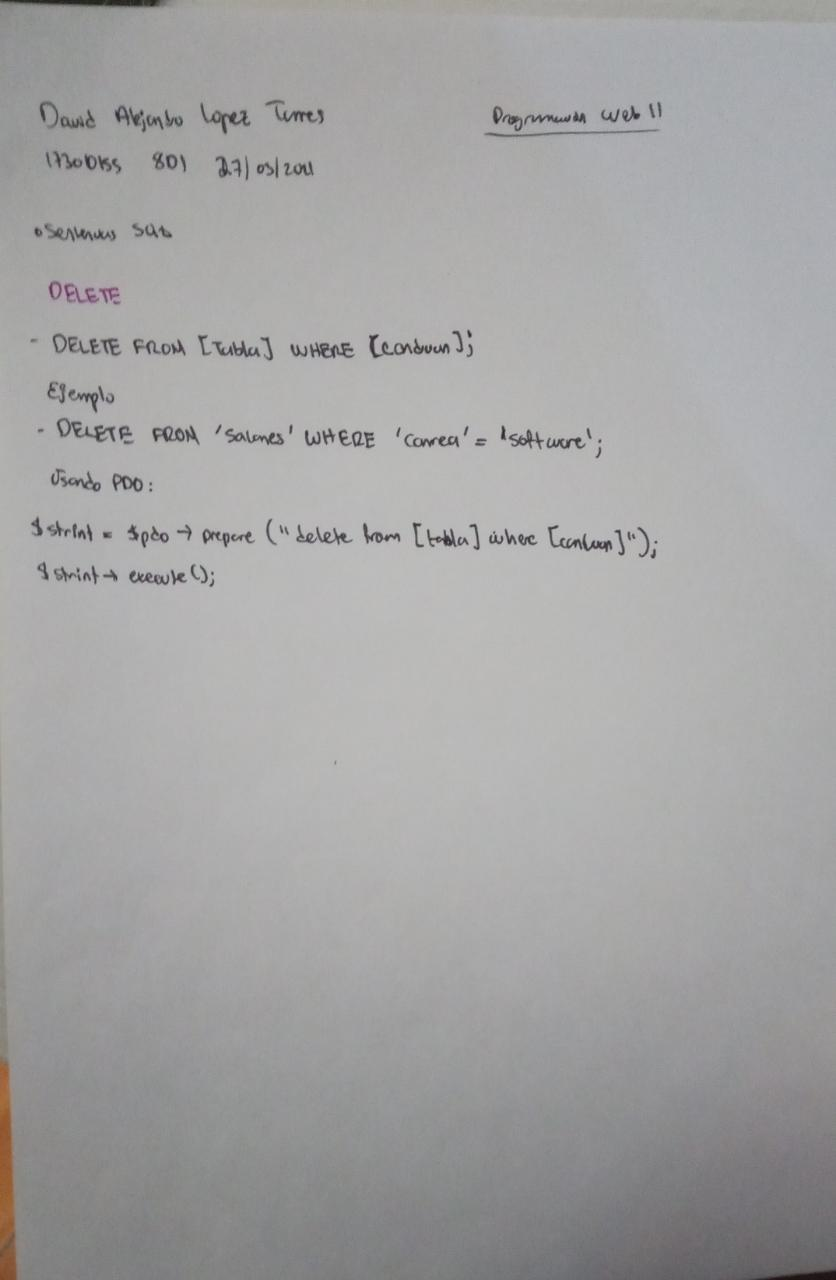 David Alejandro Lopez Torres Programacion Web II
801 27/03/2021
Sentencias SQL
DELETE
- DELETE FROM [Tabla] WHERE [Condicion];
Ejemplo
- DELETE FROM 'Salones' WHERE 'Carrera' = 'Software';
Usando PDO:
$strint = $pdo → prepare ("delete from [tabla] where [condicion]");
$strint → execute();